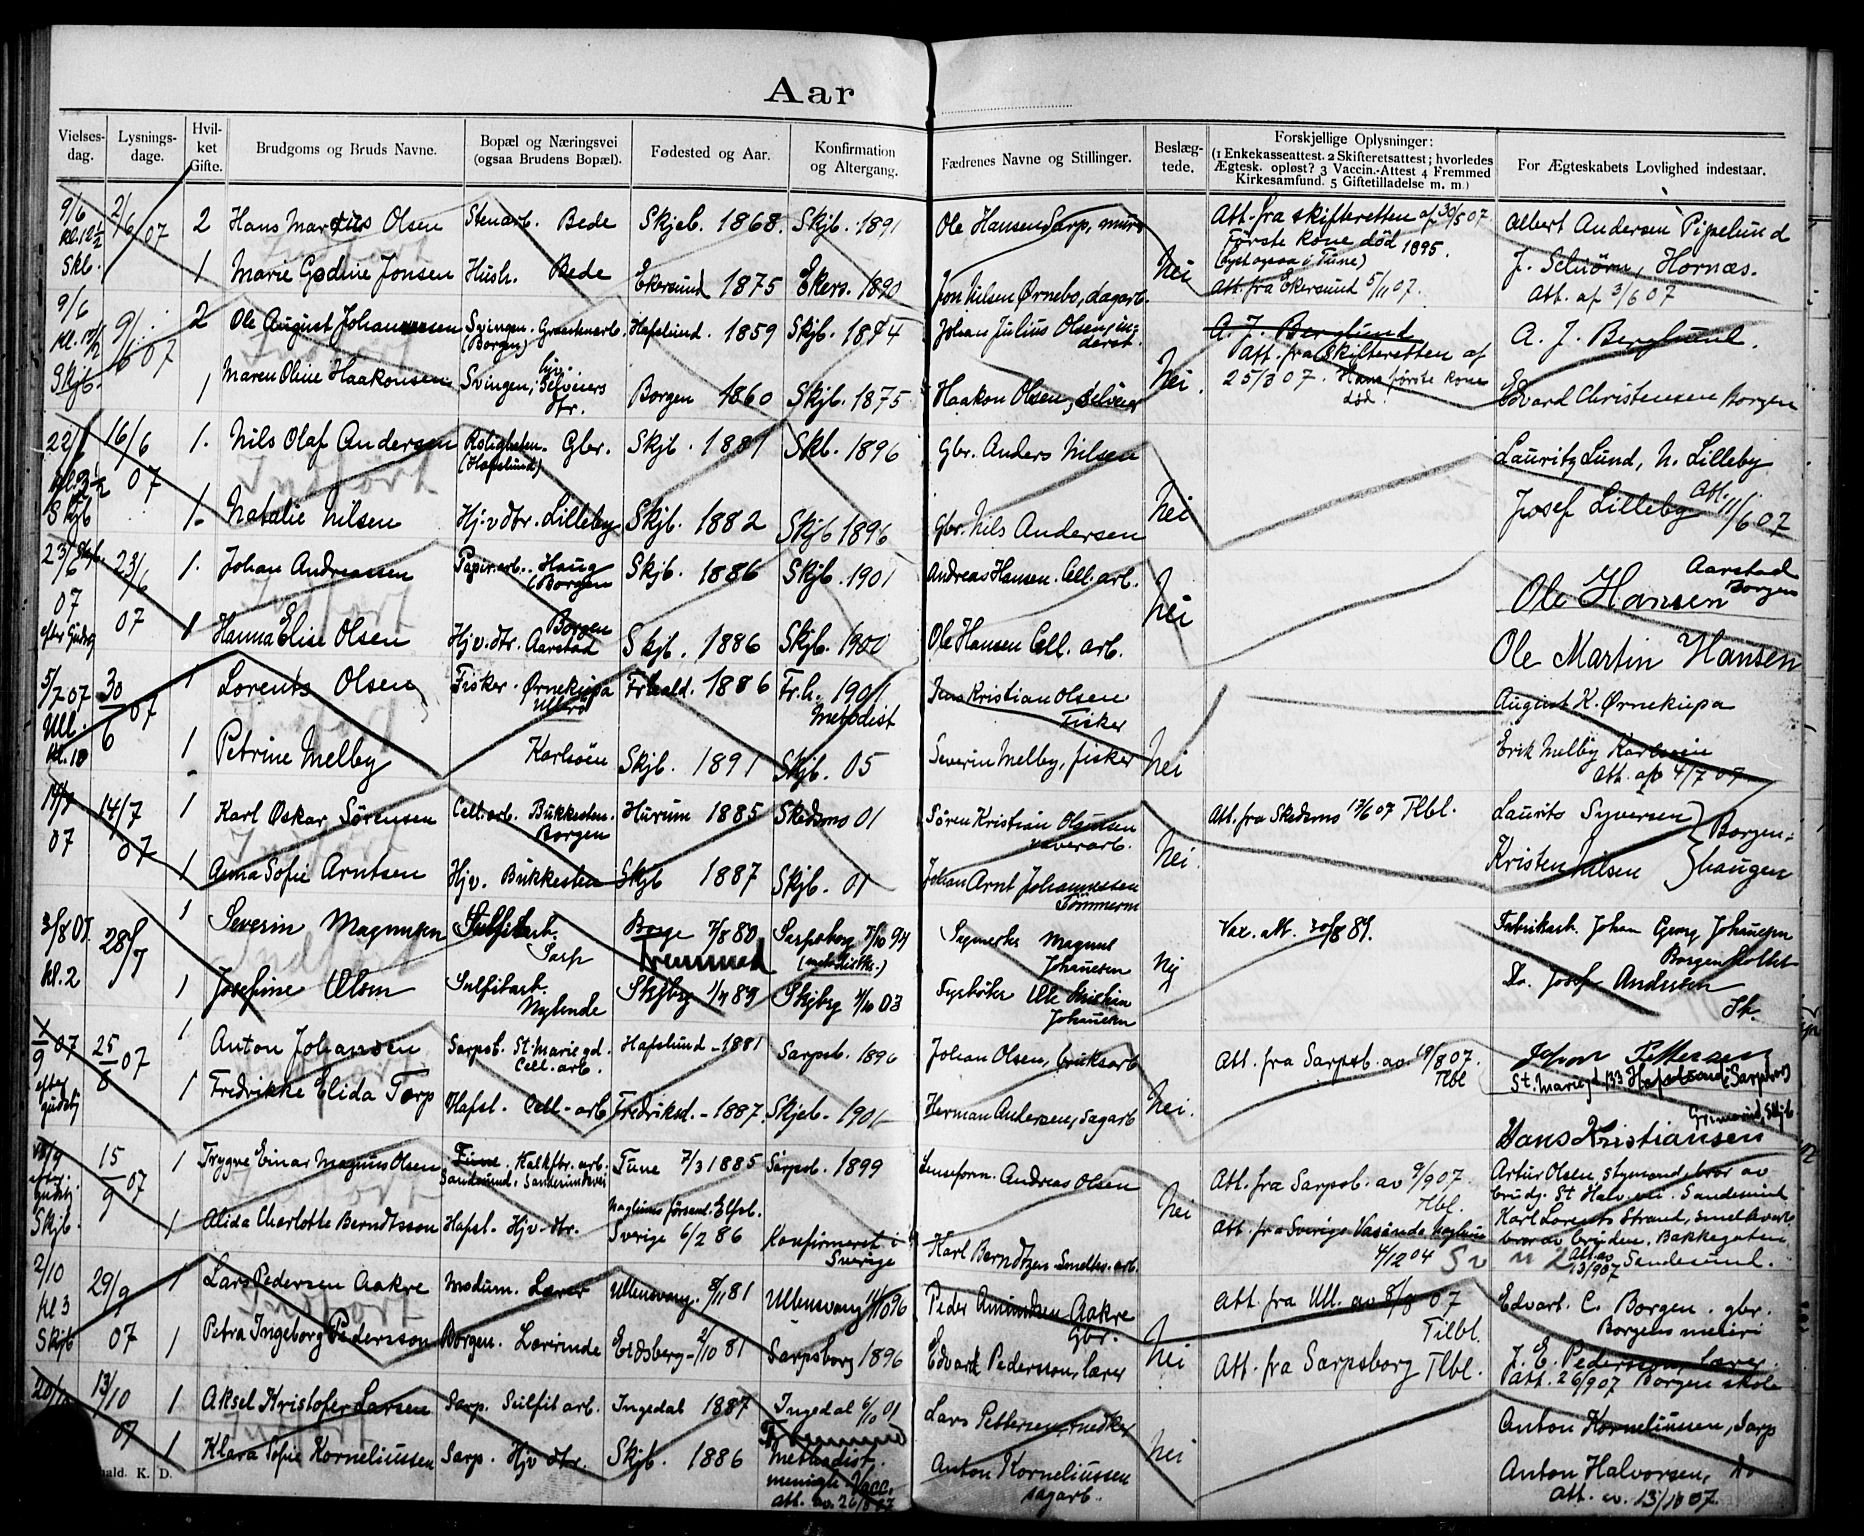 Aar
Vielses-dag.
Lysnings-dage.
Hvil-ket Gifte.
Brudgoms og Bruds Navne.
Bopæl og Næringsvei (ogsaa Brudens Bopæl).
Fødested og Aar.
Konfirmation og Altergang.
Fædrenes Navne og Stillinger.
Beslæg-tede.
Forskjellige Oplysninger:
(1 Enkekasseattest. 2 Skifteretsattest; hvorledes
Ægtesk. opløst? 3 Vaccin.-Attest 4 Fremmed
Kirkesamfund. 5 Giftetilladelse m. m.)
For Ægteskabets Lovlighed indestaar.
9/6 kl. 12½ Skb. 2/6 07
2 Hans Olsen Stenarb. Bede Skjeb. 1868. Skjb. 1891 Ole Hansen Sarp, murer
Att. fra skifteretten af 30/5 07
Første kone død 1895.
(lyst ogsaa i Tune)
Albert Andersen Pipelund
1 Marie Jonsen Hush. Bede Ekersund 1875 Ekers. 1890 Jon Nilsen Ørnebo, dagarb. Nei
Att. fra Ekersund 5/11 07.
Hornæs.
Att. af 3/6 07
9/6 Skjb. 9/6 07
2 Ole August Svingen. (Borgen) Hafslund. 1859 Skjb. 1874 Johan Julius Olsen, inderst.
A. J. Berglund
att. fra skifteretten af
25/3 07. Hans første kone død.
A. J. Berglund.
1 Maren Oline Haakonsen Svingen, Borgen 1860 Skjb. 1875 Haakon Olsen, Nei.
Edvard Christensen Borgen
22/6 Skjb 16/6 07
1. Nils Olaf Andersen Roligheten. (Hafslund) Gbr. Skjb. 1881 Skb. 1896 Gbr. Anders Nilsen
Lauritz Lund, N. Lilleby
1. Natalie Nilsen Hj.v. dtr. Lilleby Skjb. 1882 Skjb 1896 Gbr. Nils Andersen Nei
Josef Lilleby Att. 11/6 07
23/6 07 efter Gudstj 23/6 07
1. Johan Andreassen Papirarb. Haug (Borgen Skjb. 1886 Skjb. 1901 Andreas Hansen. Cell. arb. Nei
Ole Hansen Aarstad Borgen
1 Hanna Elise Olsen Hj.v. dtr. Aarstad Borgen Skjb. 1886 Skjb. 1900 Ole Hansen Cell. arb.
Ole Martin Hansen
5/7 07 Ull. kl. 10 30/6 07
1 Lorents Olsen Fisker. Ørnekupa Frhald. 1886 Fr.h. 1901 Metodist Jens Kristian Olsen Fisker
August K. Ørnekupa
1 Petrine Melby Karlsøen Skjb. 1891 Skjb. 05 Severin Melby, fisker Nei
Erik Melby Karlsøen
Att. af 4/7 07
14/7 07 14/7 07
1 Karl Oskar Sørensen Cell. arb. Bukkesten. Borgen Hurum 1885 Skedsmo 01 Søren Kristian
Att. fra Skedsmo 17/6 07 Tlbl.
Laurits Syversen
1 Anna Sofie Arntsen Hjv. Bukkesten Skjb 1887 Skjb. 01 Johan Arnt Johannessen Tømmerm Nei.
Kristen Nilsen } Borgen-haugen
3/8 07. kl. 2 28/7
1 Severin Magnusen Sulfitarb. Sarp Borge 7/8 80 Sarpsborg 7/10 94 Magnus Johansen
Fremmed
Vax. att. 30/8 89.
Fabrikarb. Johan Georg Johansen
1 Josefine Olsen Sulfitarb. Nylende Skjbrg 1/4 89 Skjbrg 4/10 03 Fyrbøter Ole Kristian Johansen Nej
Do. Josef Andersen
1/9 07 efter gudstj 25/8 07
1 Anton Johansen Sarpsb. St. Marie gd. Cell. arb. Hafslund - 1881 Sarpsb. 1896 Johan Olsen, bruksarb
Att. fra Sarpsb. av 19/8 07. Tlbl
Johan Pettersen
St. Marieg d. 133 Hafslund (Sarpsborg)
1 Fredrikke Elida Torp Hafsl. Cell-arb Fredrikst. - 1887. Skjeb. 1901 Herman Andersen, Sagarb Nei.
Hans Kristiansen
efter gudstj. Skjb. 15/9 07
1 Trygve Einar Magnus Olsen Tune. Kalkfbr. arb. Tune 7/3 1885 Sarpsb. 1899 Andreas Olsen
Att. fra Sarpsb. av 9/9 07. Tlbl.
Artur Olsen, styrmand bror av
brudg. St Halv. Sandesund
1 Alida Charlotte Berndtsson Hafsl. Hjv. dtr. Sverige 6/2 86 Konfirmeret i Sverige Karl Berndtzen Smelte. arb. Nei
Att. fra Sverige 4/12 04
Karl Lorents Strand, Smelteverk
bror av bruden. Bakkegaten
13/9 07 Sandesund.
2/10 kl 3 Skjb 29/9 07
1 Lars Pedersen Aakre Modum. Lærer Ullensvang. 8/11 81 Ullensvang 11/10 96 Peder Amundsen Aakre Gbr.
Att. fra Ull. av 8/8 07 Tilbl.
Edvart. C. Borgen. gbr.
Borgens meieri
1 Petra Ingeborg Pedersson Borgen. Lærerinde Eidsberg - 2/10 81 Sarpsborg 1896 Edvard Pedersson, lærer Nei
Att. fra Sarpsborg Tlbl.
J. E. Pedersson, lærer.
att. 26/9 07 Borgen skole
20/10 13/10 07
1 Aksel Kristofer Larsen Sarp. Sulfit arb. Ingedal 1887 Ingedal 6/10 01 Lars Pettersen, snedker
Anton Korneliussen, Sarp
1 Klara Sofie Korneliussen Sarp. Hjv dtr. Skjb. 1886 Fremmed Methodist. menigh. Vacc. att. av. Anton Korneliussen sagarb. Nei
Anton Halvorsen, do
Att. av. 13/10 07.
Indført
hald. K. D.